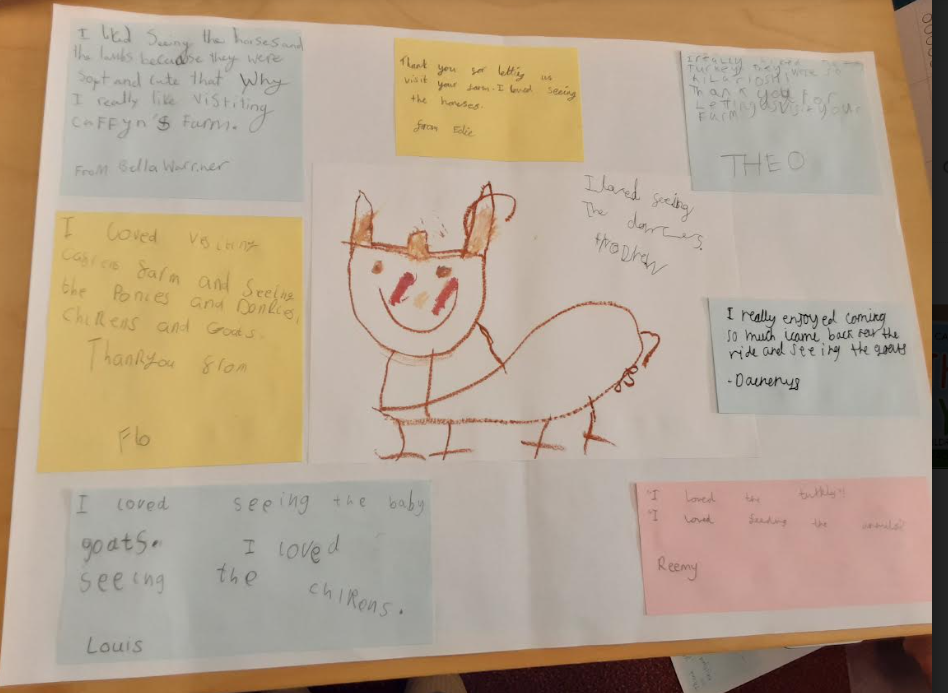 I likd Seeing the horses and
the lambs because they were
Soft and cute that Why
I really like Visiting
caFFyn's Farm.
From Bella Warriner
Thank you for letting us
visit your farm. I loved seeing
the horses.
from Edie
I really
turkey they were so
HiLariOus!
Thank you For
LeTTing us Visit your
Farm
THEO
I loved seeing
The
I loved visiting
farm and Seeing
the Ponies and Donkies,
ChiKens and Goats.
Thankyou from
I really enjoyed coming
so much icame back for the
ride and seeing the goats
- Daenerys
I loved seeing the baby
goats. I loved
seeing the chiKens.
Louis
"I loved the
"I loved feeding the
Reemy